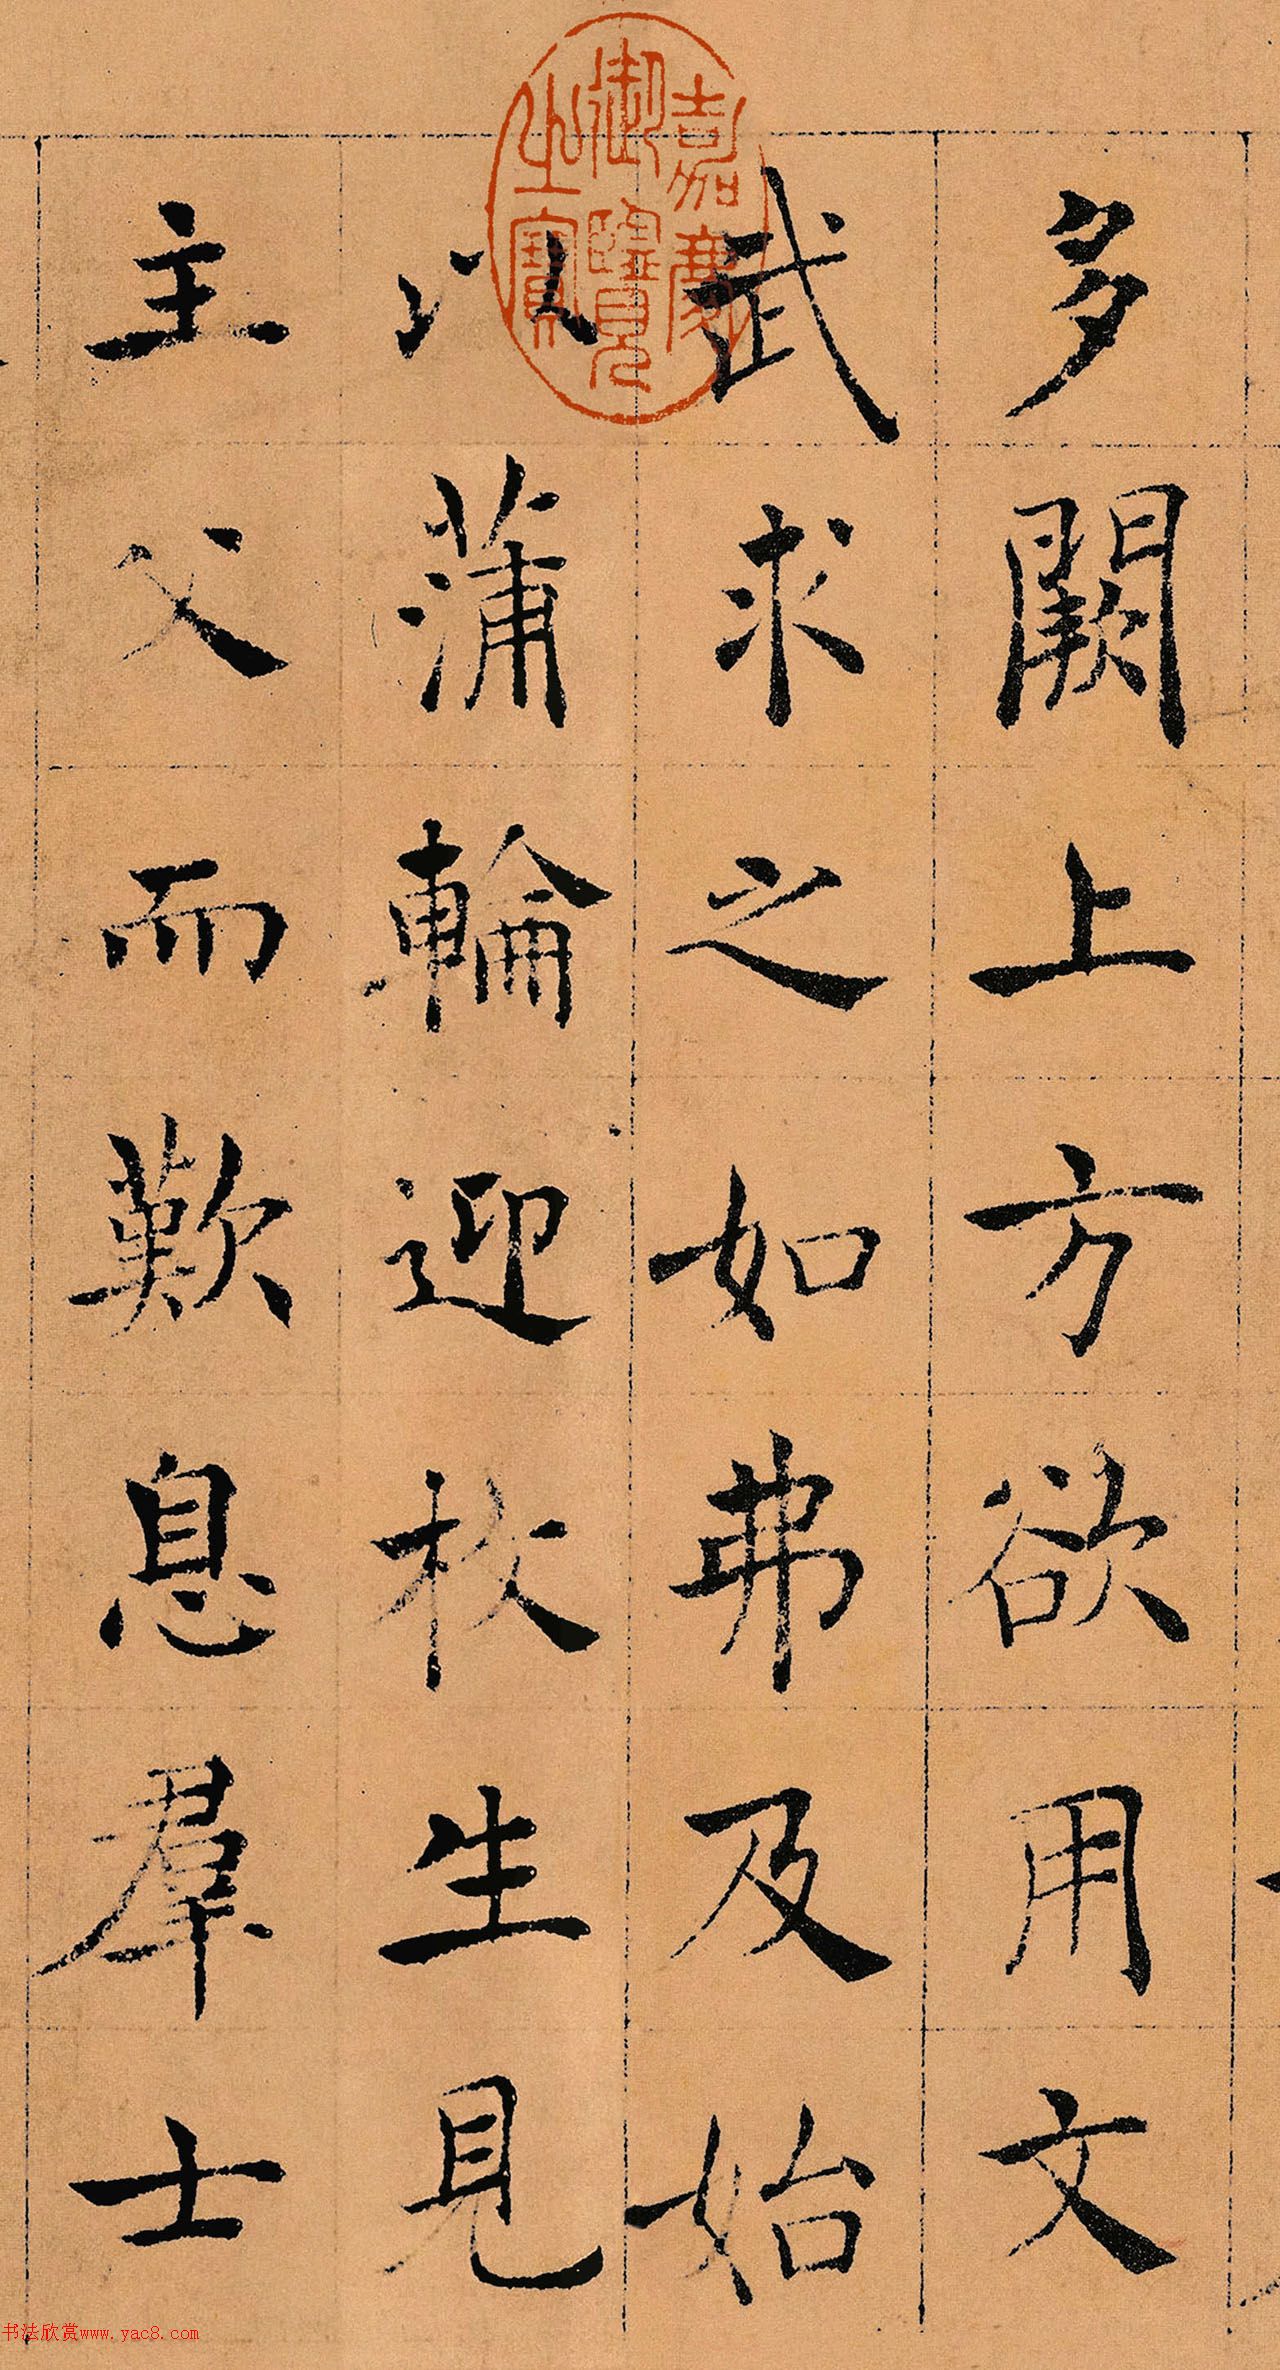 多闕上方欲用文
武求之如弗及始
以蒲輪迎枚生見
主父而歎息羣士
嘉慶御覽之寶
书法欣赏www.yac8.com